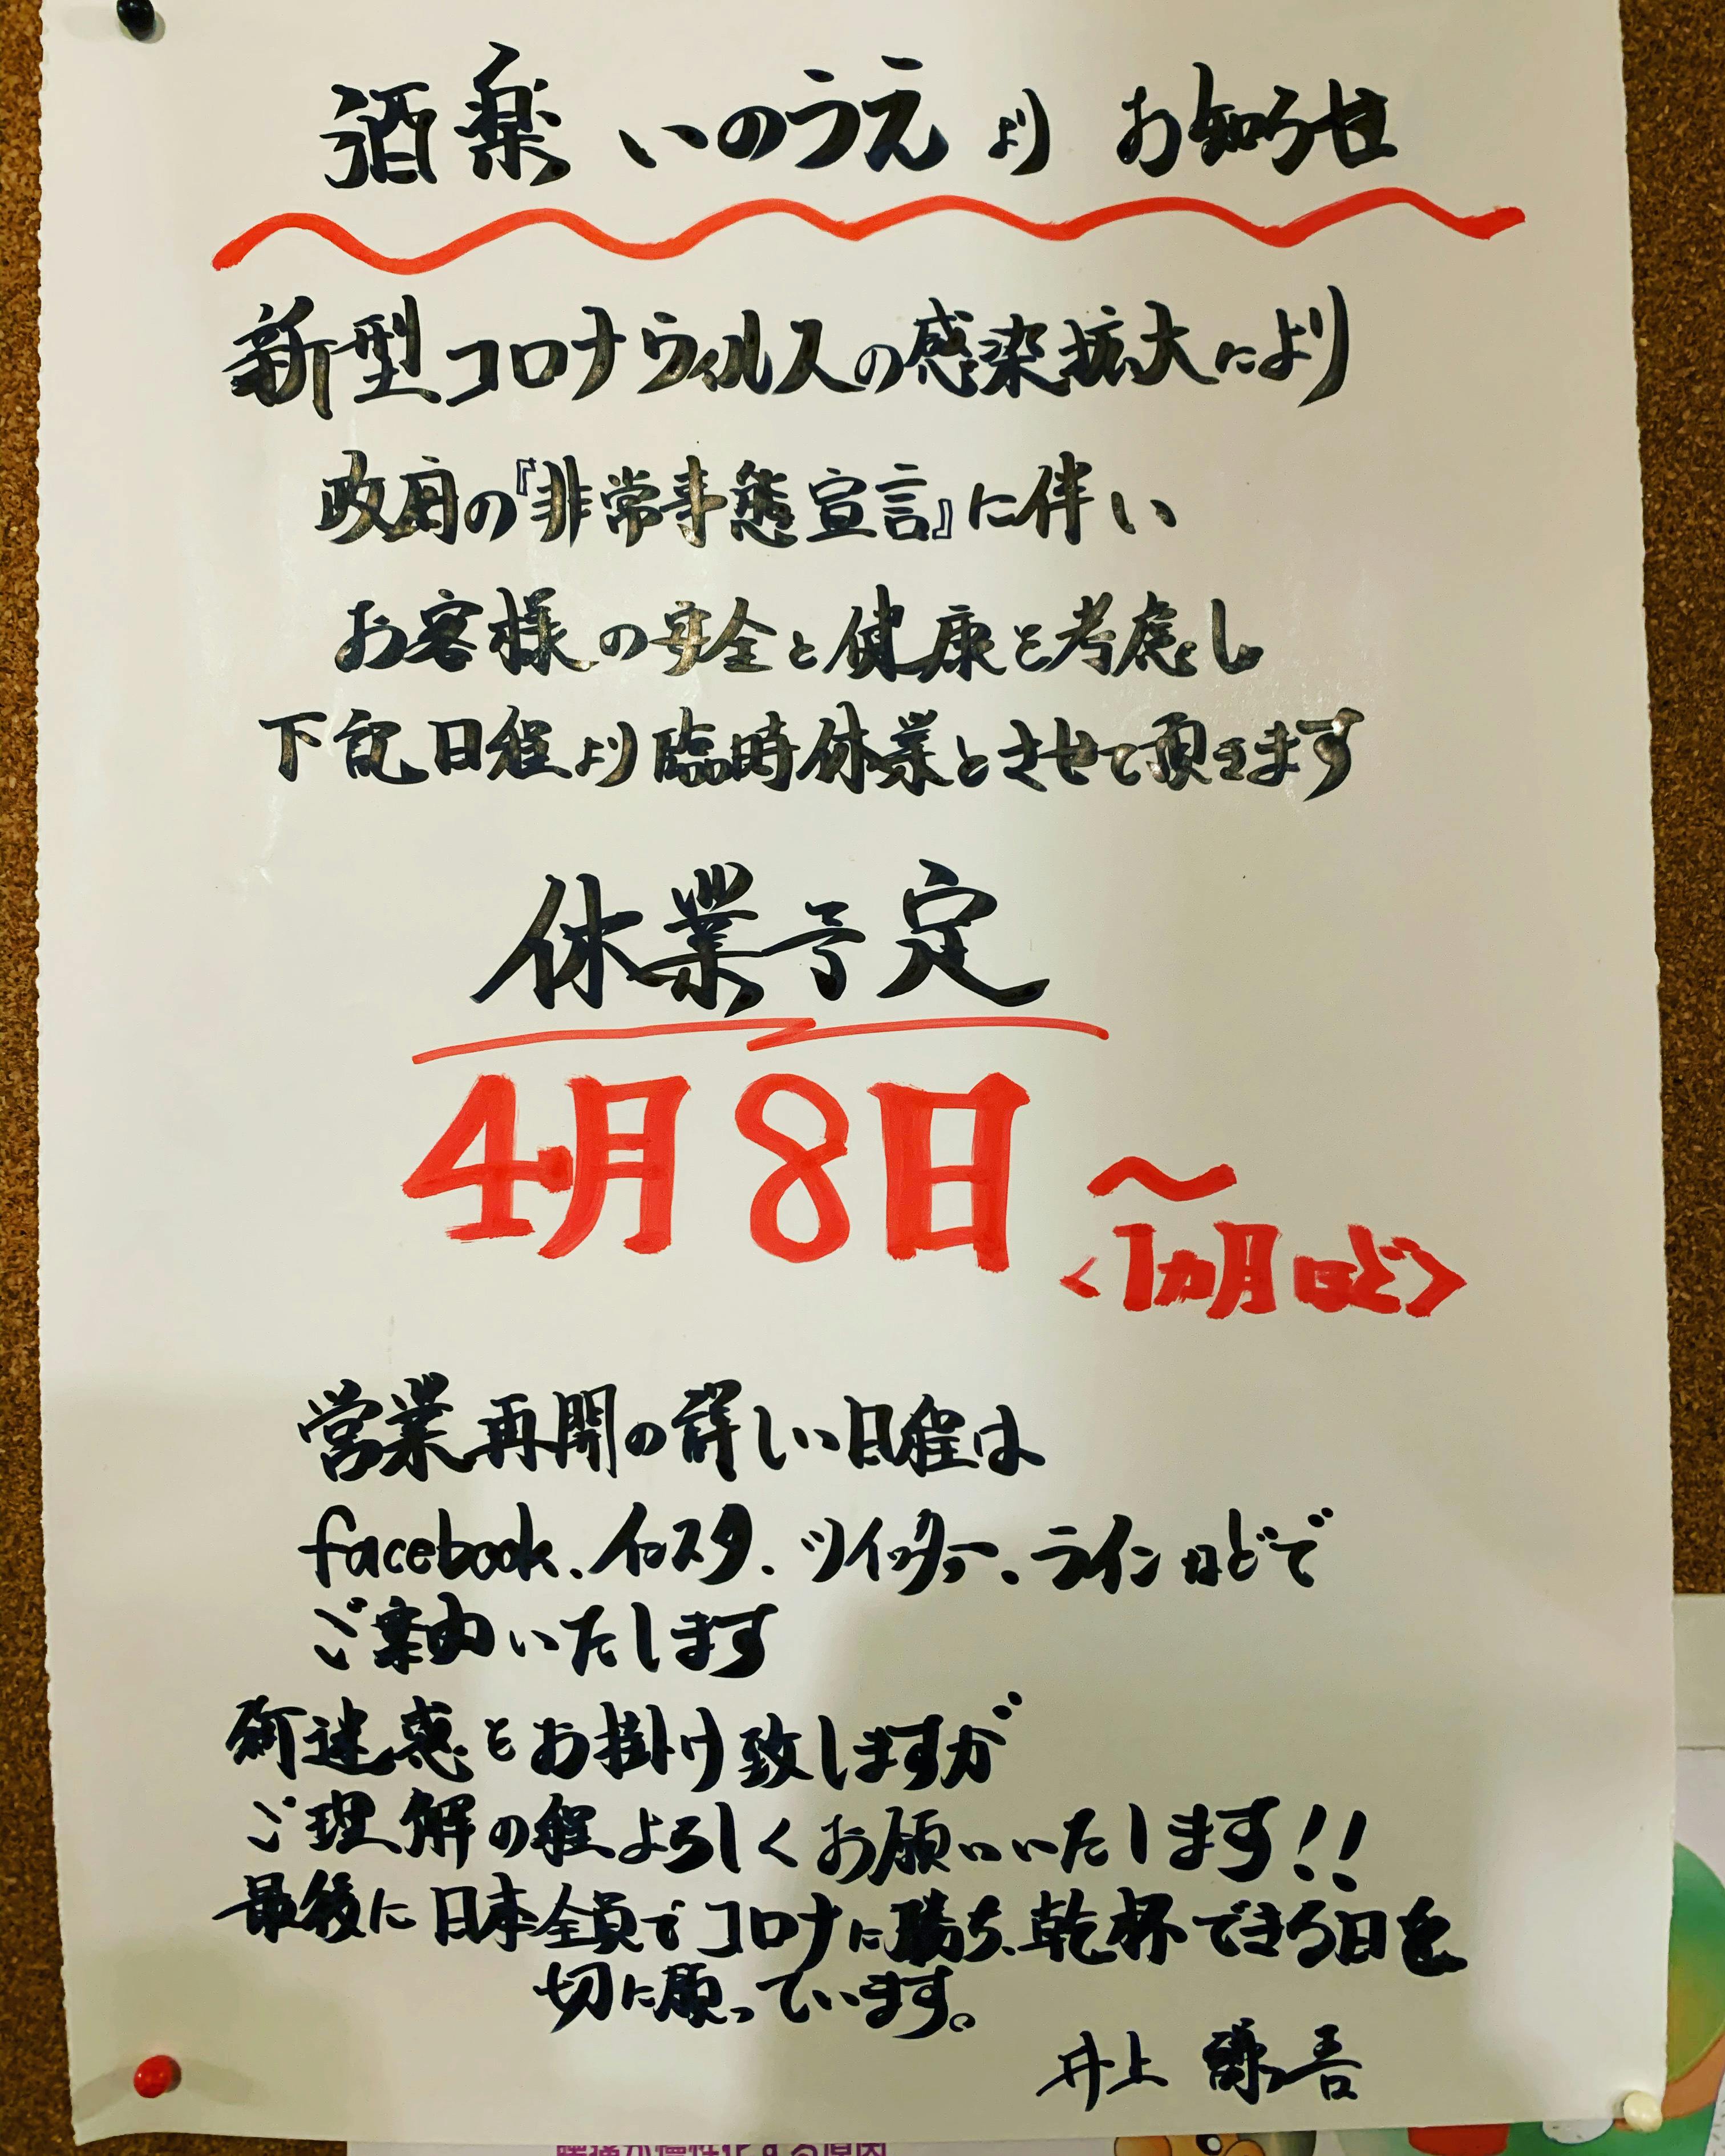 酒楽 いのうえ より お知らせ
新型コロナウィルスの感染拡大により
政府の『非常事態宣言』に伴い
お客様の安全と健康を考慮し
下記日程より臨時休業とさせて頂きます
休業予定
4月8日～
<1カ月ほど>
営業再開の詳しい日程は
facebook、インスタ、ツイッター、ラインなどで
ご案内いたします
御迷惑をお掛け致しますが
ご理解の程よろしくお願いいたします!!
最後に日本全員でコロナに勝ち、乾杯できる日を
切に願っています。
井上 謙吾